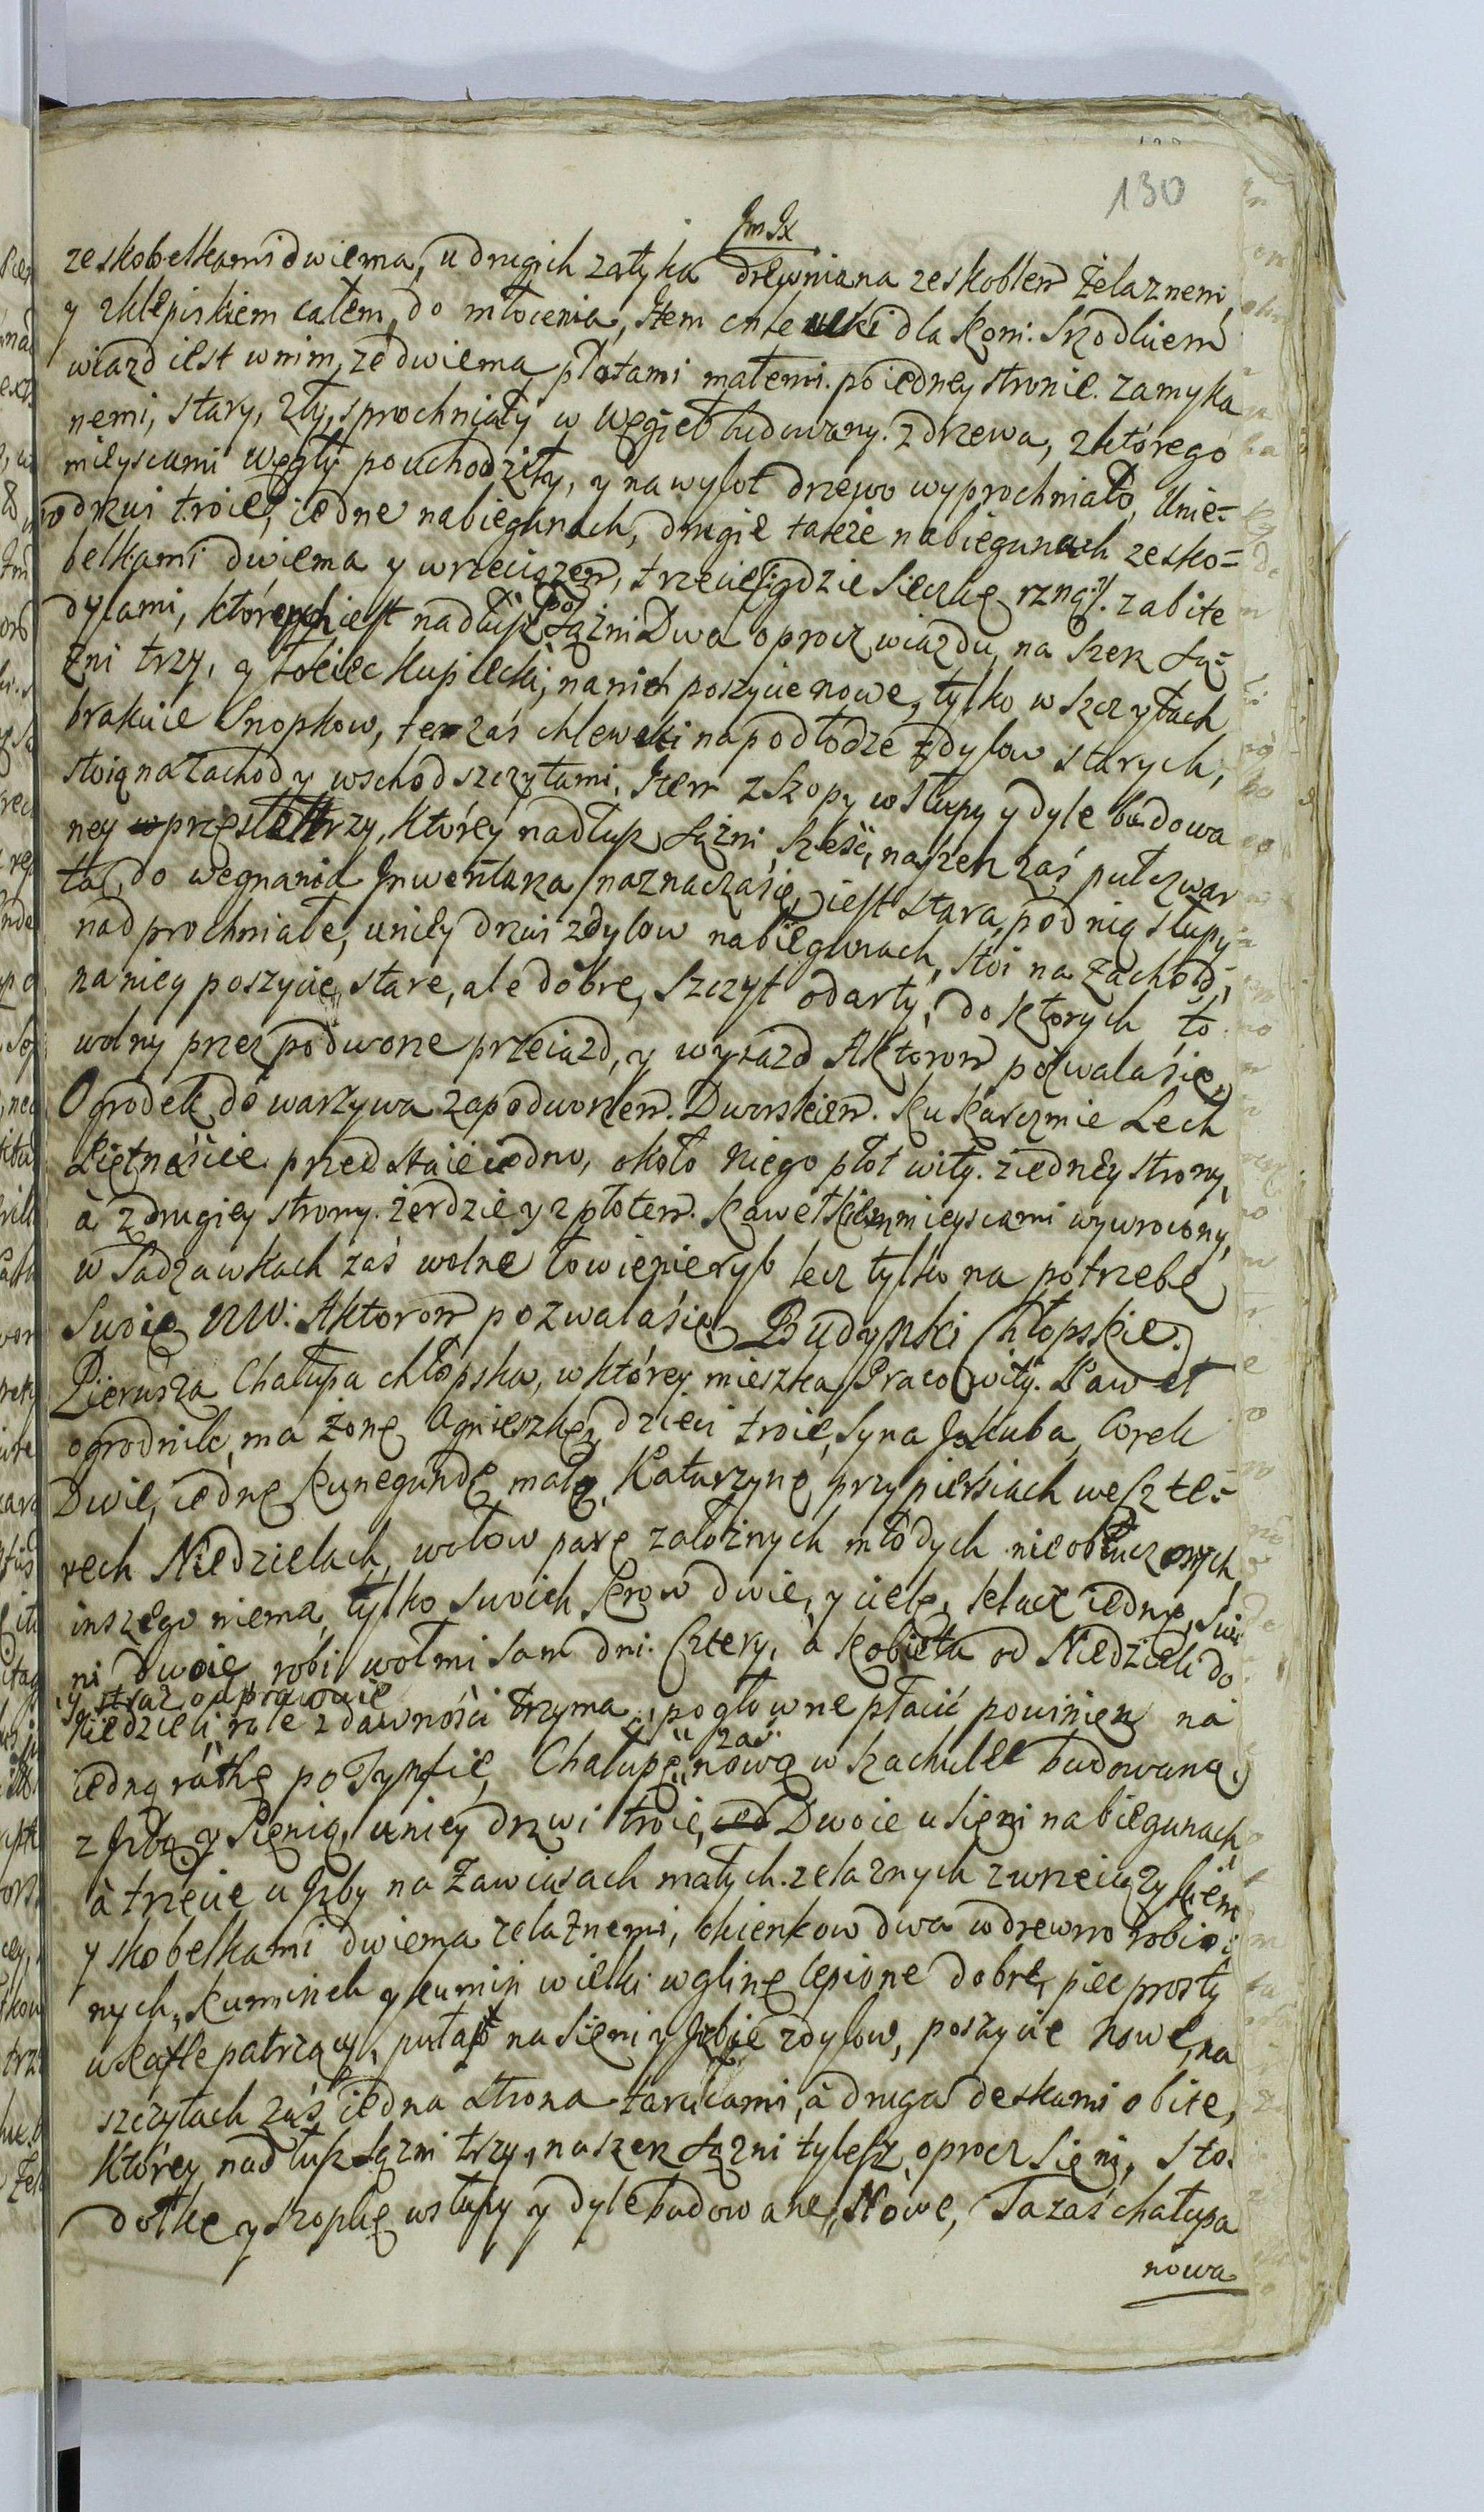 130
ze skobelkami dwiema, u drugich zatyka drewniana ze skoblem żelaznemi,
y zklepiskiem całem, do młocenia, Item chlewki dla koni. Srzodkiem
wiazd iest w nim, ze dwiema płotami małemi. po iedney stronie. zamyka
nemi, stary, zły, sprochniały w węgieł budowany. z drzewa, z którego
mieyscami węgły pouchodziły, y na wylot drzewo wyprochniało, Unie-
go drzwi troie, iedne na biegunach, drugie także na biegunach ze sko-
belkami dwiema y wrzeciązem, trzecie gdzie Sieczkę rzną. zabite
dylami, których iest na dłuż Sążni Dwa oprocz wiazdu, na szerz Są-
żni trzy, y łokiec kupiecki, na nich poszycie nowe, tylko w szczytach
brakuie Snopkow, te zaś chlewki na podłodze z dylow starych,
stoią na zachod y wschod szczytami, Item z Szopy w słupy y dyle budowa
ney w przęsła trzy, którey na dłuż Sążni Sześć, na szerz zaś pułczwar
ta, do wegnania Inwentarza naznacza się, iest stara, pod nią słupy
nadprochniałe, u niey drzwi z dylow na biegunach, stoi na zachod,
na niey poszycie stare, ale dobre, Szczyt odarty, do ktorych to
wolny przez podworze przeiazd, y wyiazd Aktorom pozwala się
Ogrodek do warzywa za podworzem. Dworskiem. ku karczmie Lech
Piętnaście przed staie iedno, około niego płot wity. z iedney strony,
à z drugiey strony. żerdzie y z płotem. kawełkiem mieyscami wywrocony,
w Sadzawkach zaś wolne łowienie ryb lecz tylko na potrzebę
Swoię WW: Aktorom pozwala się. Budynki Chłopskie.
Pierwsza Chałupa chłopska, w którey mieszka Pracowity. Paweł
ogrodnik, ma żonę Agnieszkę, dzieci troie, Syna Jakuba, Corek
Dwie, iednę Kunegundę małą, Katarzynę przy piersiach we Czte-
rech Niedzielach, wołow parę założnych młodych nieobłuczonych,
inszego niema, tylko swoich Krow dwie, y cielę, ielucz iednę, Swi
ni dwoie, robi wołmi sam dni. Cztery, à kobieta od Niedzieli do
y straż odprawuie
Niedzieli, role z dawności trzyma, pogłowne płacić powinien na
zaś
iedną ratkę po Tynfie, Chałupę nową w szachulec budowaną.
z Izbą y Sienią, u niey drzwi troie, Dwoie u Sieni na biegunach
à trzecie u Izby na Zawiasach małych. żelaznych z wrzeciążykiem
y skobelkami dwiema żelaznemi, okienkow dwa w drewno robio
nych, kuminek y kumin wielki w glinę lepione dobre, piec prosty
w kafle patrzący, pułap na Sieni y Izbie z dylow, poszycie nowe, na
szczytach zaś iedna strona tarcicami, à druga deskami obite,
którey na dłuż Sążni trzy, na szerz Sążni tylesz oprocz Sieni, Sto-
dołkę y szopkę w słupy y dyle budowane Nowe, Ta zaś chałupa
nowa